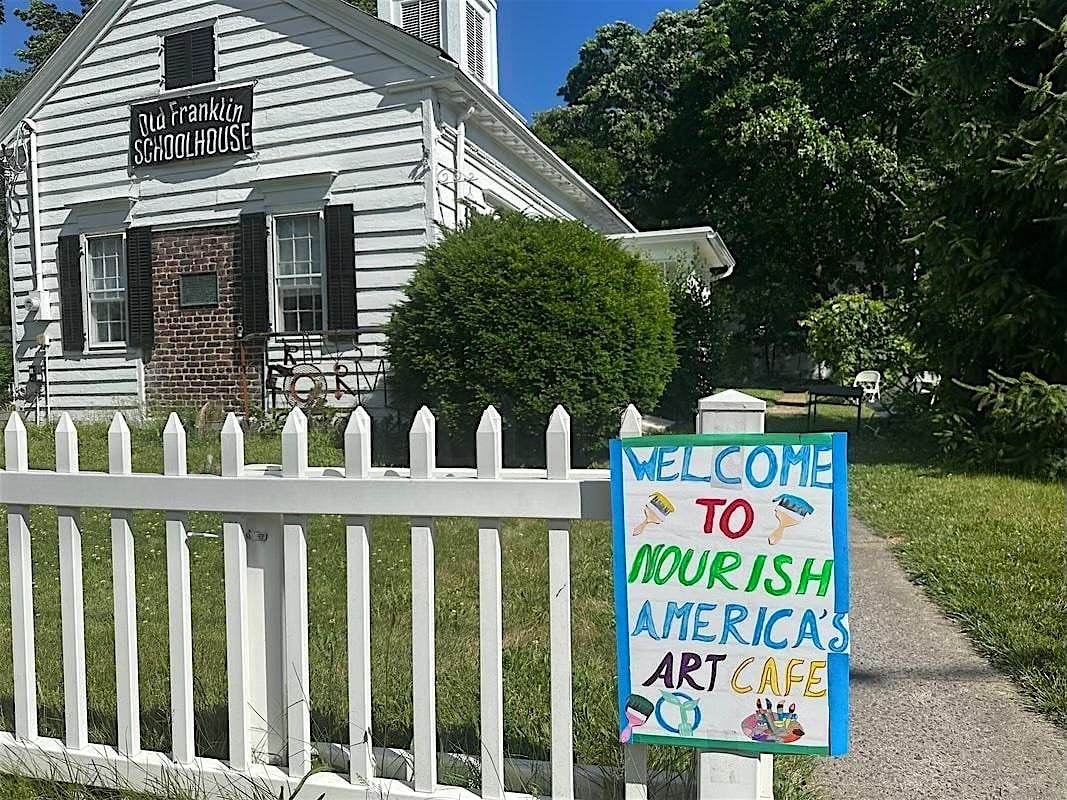 Old Franklin
SCHOOLHOUSE
WELCOME
TO
NOURISH
AMERICA'S
ART CAFE